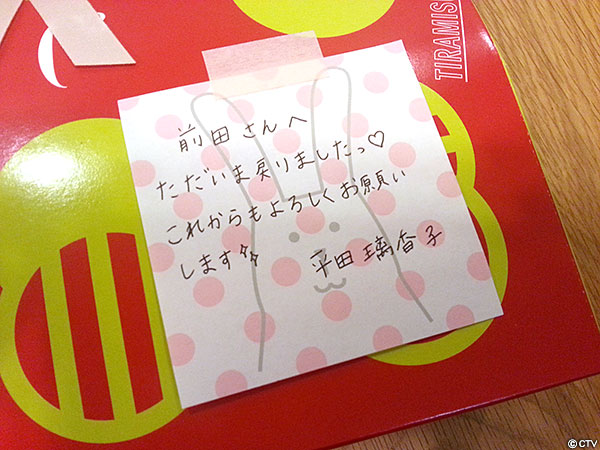 TIRAMIS
前田さんへ
ただいま戻りましたっ♡
これからもよろしくお願い
します
平田璃香子
©CTV